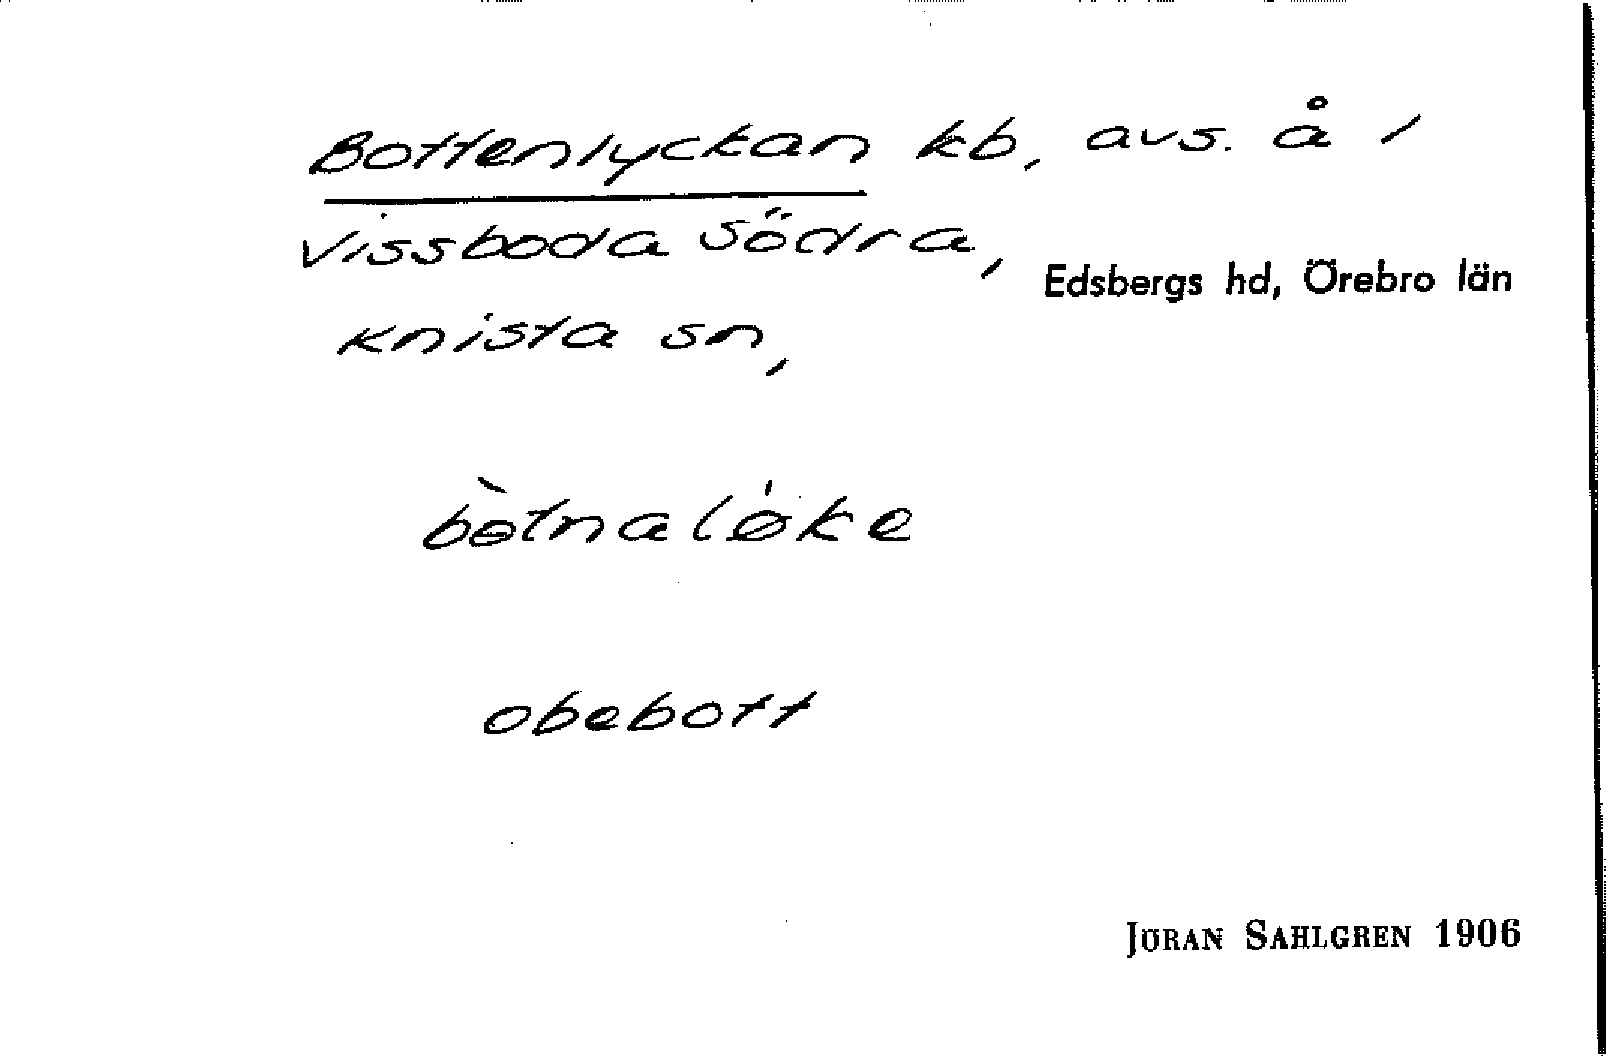 Bottenlyckan kb, avs. å 1
Vissboda Södra,
Edsbergs hd, Örebro län
Knista sn,
bòtnaløke
obebott
JÖRAN SAHLGREN 1906